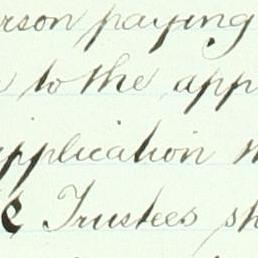 erson paying
to the app
application
Trustees sh